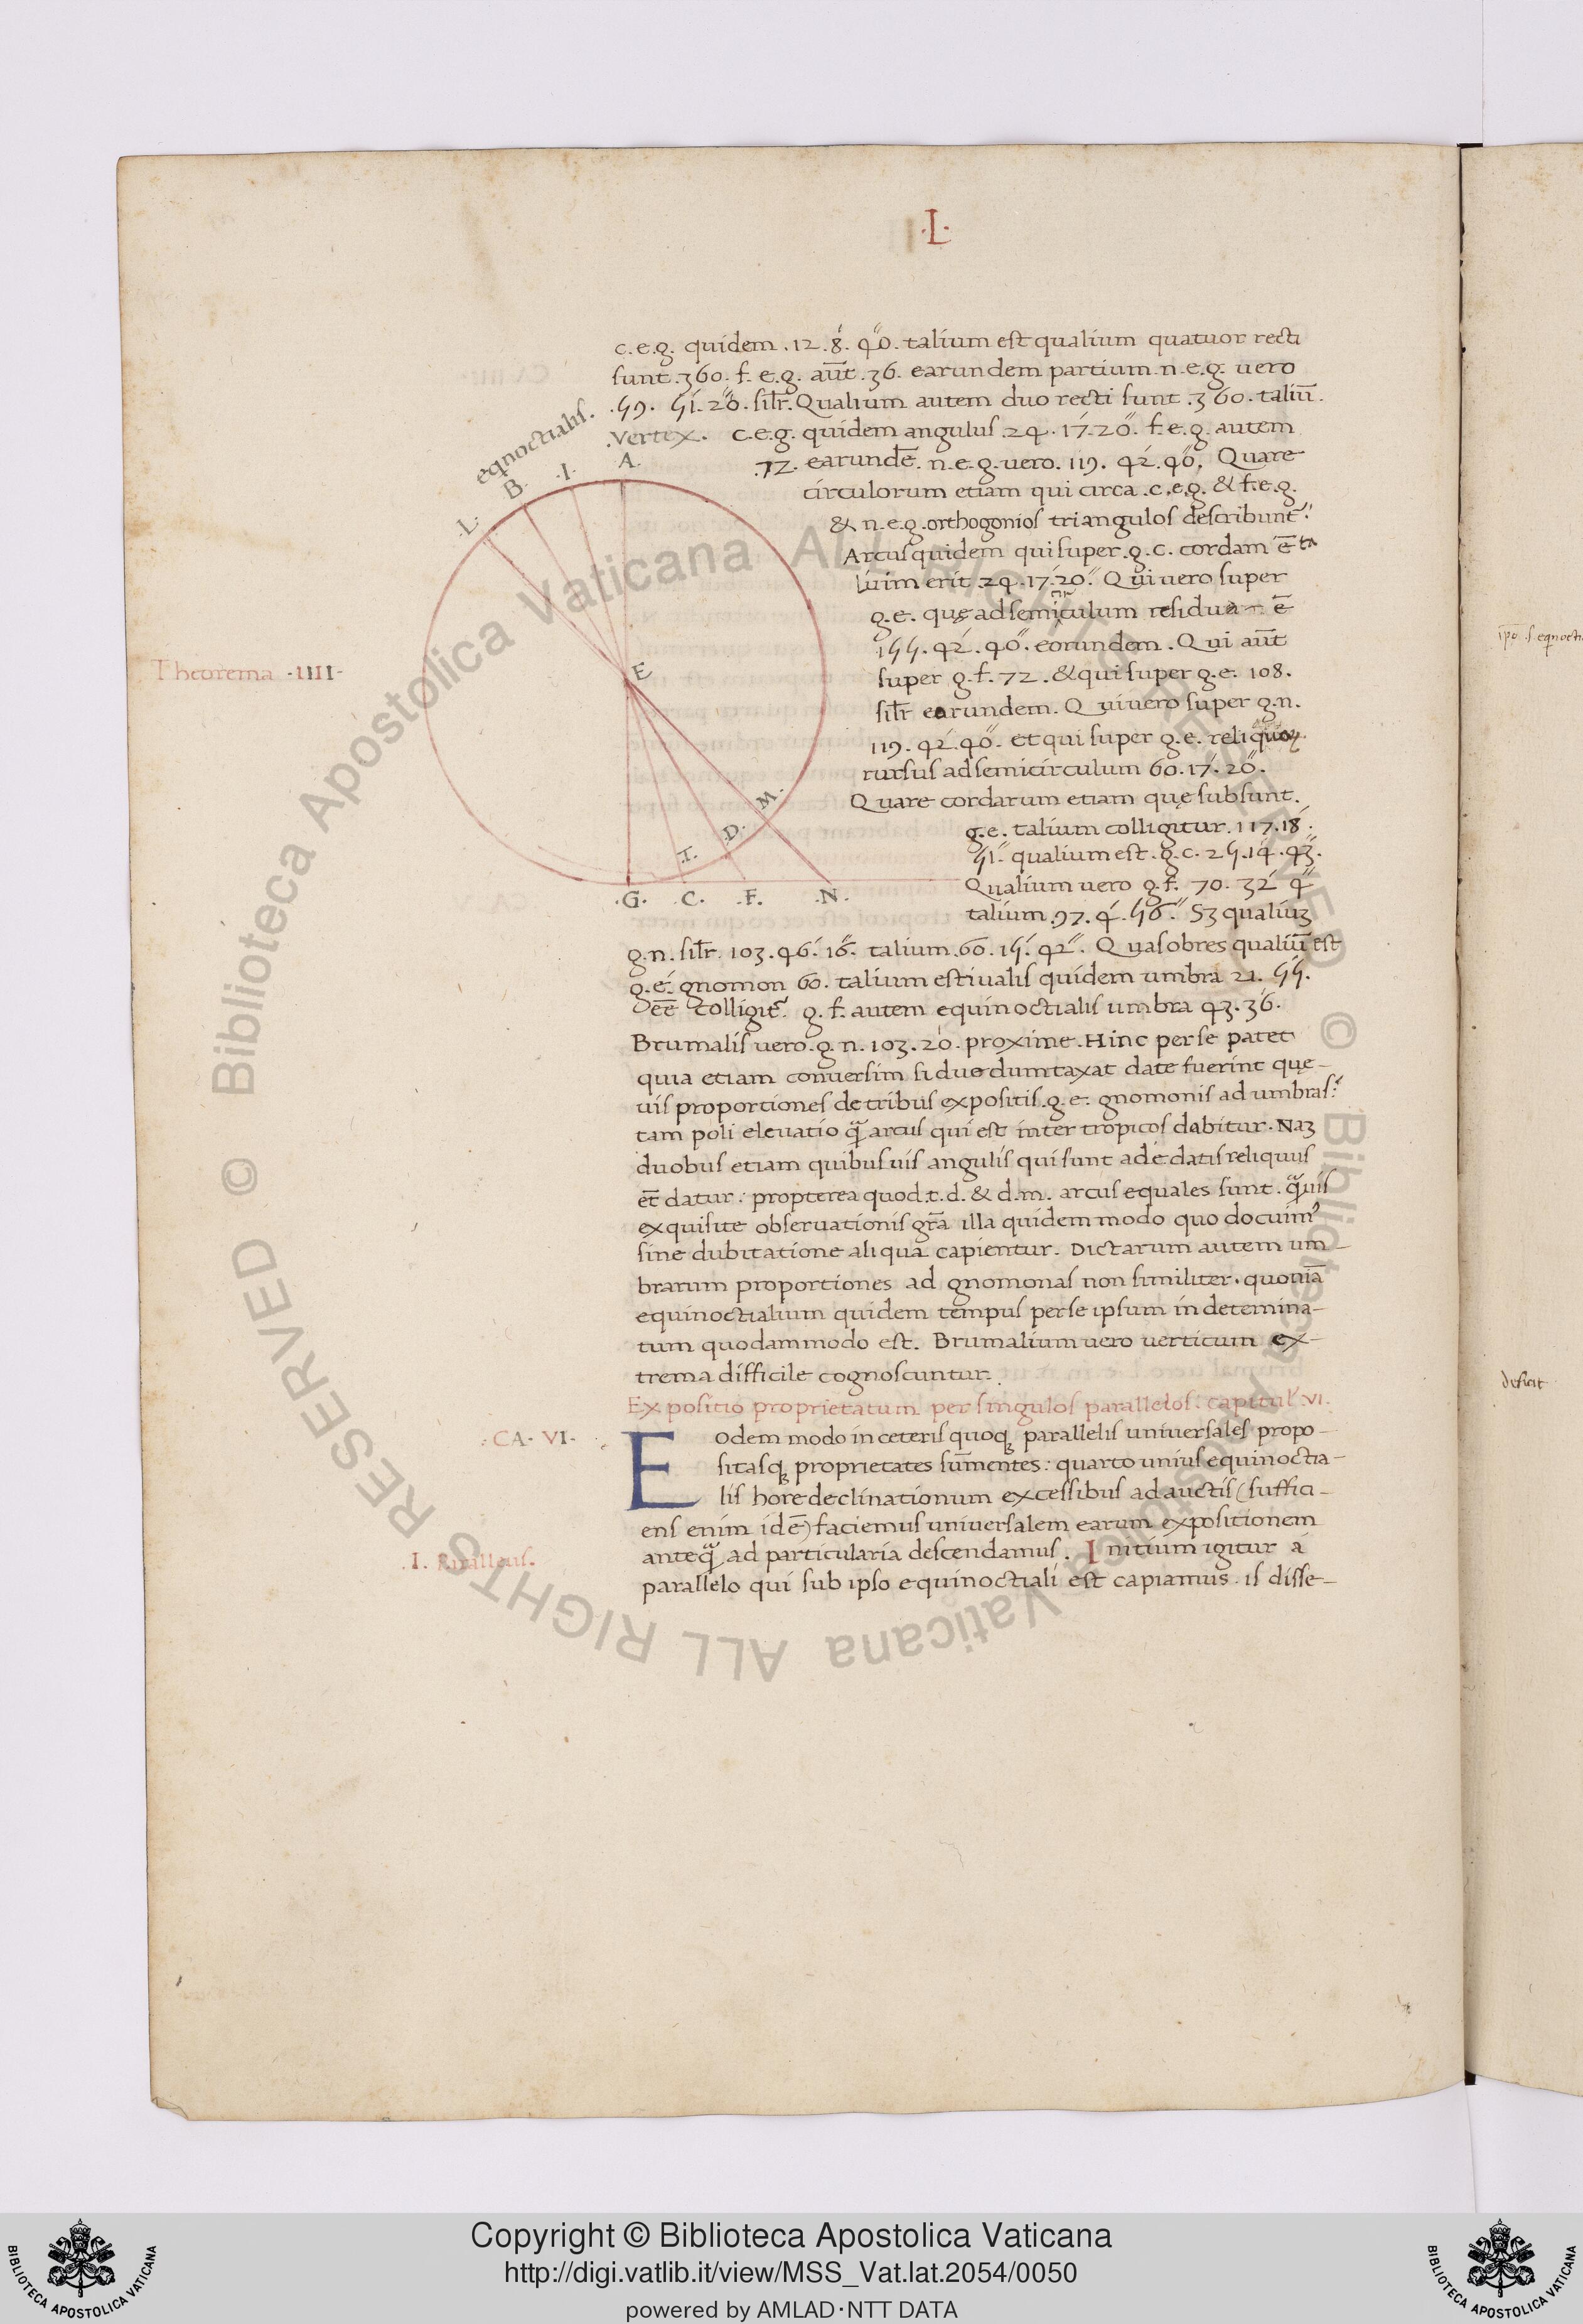 .I.
c.e.g. quidem .12.8́. 40̋. talium est qualium quatuor recti
sunt .360. f. e.g. aut̄ .36. earundem partium. n.e.g. uero
.59. 51́. 20̋. silr̄. Qualium autem duo recti sunt .360. taliū.
eqnoctialis.
.Vertex.
c.e.g. quidem angulus .24. 17́. 20̋. f.e.g. autem
.72. earundē. n.e.g. uero. 119. 42́. 40̋. Quare
circulorum etiam qui circa .c.e.g. & f.e.g.
& n.e.g. orthogonios triangulos describunt᷑.
Arcus quidem qui super .g.c. cordam ē ta
lium erit .24. 17́. 20̋. Qui uero super
g.e. quę ad semiculum residua ē
155. 42́. 40̋. eorundem. Qui aut̄
super g.f. 72. & qui super g.e. 108.
silr̄ earundem. Qui uero super g.n.
119. 42́. 40̋. et qui super g.e. reliquoꝝ
rursus ad semicirculum 60. 17́. 20̋.
Quare cordarum etiam quę subsunt.
g.e. talium colligitur. 117. 18́.
51̋. qualium est .g.c. 25. 14́. 43̋.
Qualium uero g.f. 70. 32́ 4̋
talium .97. 4́. 56̋. Sꝫ qualiuꝫ
g.n. silr̄. 103. 46́. 16̋. talium. 60. 15́. 42̋. Quas obres qualiū est
g.e. gnomon 60. talium estiualis quidem umbra 21. 55́.
eē̄ colligit᷑. g.f. autem equinoctialis umbra 43. 36́.
Brumalis uero .g.n. 103. 20́. proxime. Hinc per se patet
quia etiam conuersim si duo dumtaxat date fuerint quę-
uis proportiones de tribus expositis .g.e. gnomonis ad umbras:
tam poli eleuatio q̃ arcus qui est inter tropicos dabitur. Naꝫ
duobus etiam quibus uis angulis qui sunt ad e datis reliquus
et̄ datur: propterea quod .t.d. & d.m. arcus equales sunt. q̃uis
exquisite obseruationis gr̄a illa quidem modo quo docuimꝰ
sine dubitatione aliqua capientur. Dictarum autem um-
brarum proportiones ad gnomonas non similiter. quoniā
equinoctialium quidem tempus per se ipsum in detemina-
tum quodammodo est. Brumalium uero uerticum ex-
trema difficile cognoscuntur.
Expositio proprietatum per singulos parallelos. capitul' .VI.
Eodem modo in ceteris quoqꝫ parallelis uniuersales propo-
sitasqꝫ proprietates sum̄entes: quarto unius equinoctia-
lis hore declinationum excessibus ad auctis (suffici-
ens enim id ē) faciemus uniuersalem earum expositionem
anteq̃ ad particularia descendamus. Initium igitur a
parallelo qui sub ipso equinoctiali est capiamus. is disse-
Theorema .IIII.
.CA. VI.
.I. Parallelus.
.L.
B.
.I.
A.
E
M.
D.
.T.
.G.
C.
.F.
.N.
ip̄o .s. eqnocti
deficit
Biblioteca Apostolica Vaticana ALL RIGHTS RESERVED © Biblioteca Apostolica Vaticana ALL RIGHTS RESERVED ©
Copyright © Biblioteca Apostolica Vaticana
http://digi.vatlib.it/view/MSS_Vat.lat.2054/0050
powered by AMLAD·NTT DATA
BIBLIOTECA APOSTOLICA VATICANA
BIBLIOTECA APOSTOLICA VATICANA